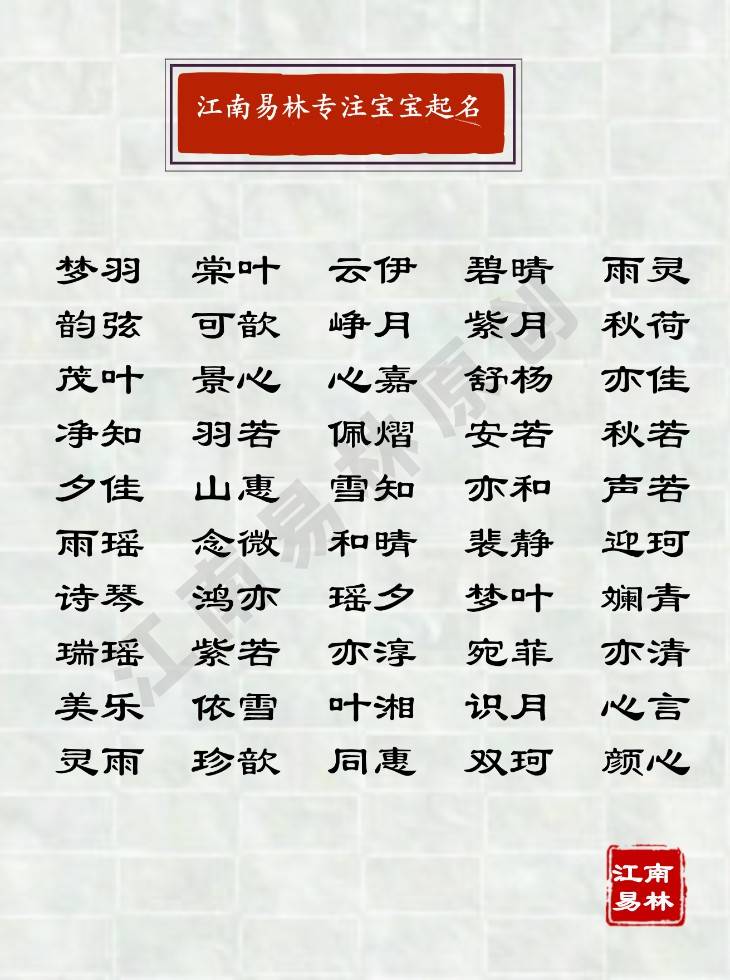 江南易林专注宝宝起名
梦羽 棠叶 云伊 碧晴 雨灵
韵弦 可歆 峥月 紫月 秋荷
茂叶 景心 心嘉 舒杨 亦佳
净知 羽若 佩熠 安若 秋若
夕佳 山惠 雪知 亦和 声若
雨瑶 念微 和晴 裴静 迎珂
诗琴 鸿亦 瑶夕 梦叶 斓青
瑞瑶 紫若 亦淳 宛菲 亦清
美乐 依雪 叶湘 识月 心言
灵雨 珍歆 同惠 双珂 颜心
江南易林原创
江南
易林